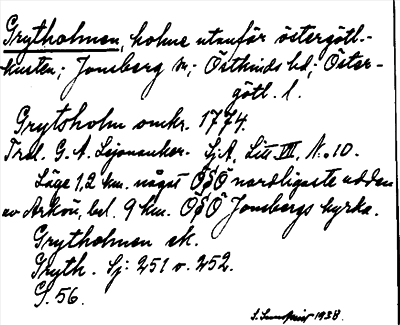 Grytholmen, holme utanför östergötl.-
kusten; Jonsberg sn; Östkinds hd; Öster-
götl. l.
Grytsholm omkr. 1774.
Trol. G. A. Lejonanker. SjA, Litt VII, N. 10.
Läge 1,2 km. något ÖSÖ nordligaste udden
av Arkön, bel. 9 km. ÖSÖ Jonsbergs kyrka.
Grytholmen ek.
Gryth. Sj: 251 v. 252.
G. 56.
1938.